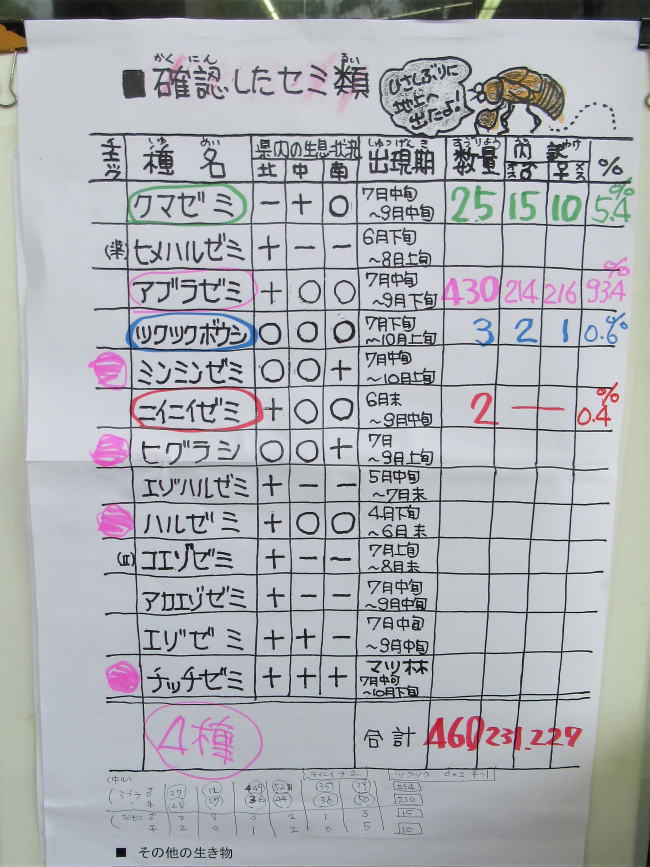 ■確認したセミ類
かくにん るい
ひさしぶりに
地上へ
出たよ!
チェック 種名 県内の生息状況 出現期 数量 内訳 %
しゅ めい しゅつげんき すうりょう うちわけ
北 中 南 オス♂ メス♀
クマゼミ － ＋ ○ 7月中旬～9月中旬 25 15 10 5.4%
(準) ヒメハルゼミ ＋ － － 6月下旬～8月上旬
アブラゼミ ＋ ○ ○ 7月中旬～9月下旬 430 214 216 93.4%
ツクツクボウシ ○ ○ ○ 7月下旬～10月上旬 3 2 1 0.6%
ミンミンゼミ ○ ○ ＋ 7月中旬～10月上旬
ニイニイゼミ ＋ ○ ○ 6月末～9月中旬 2 — 0.4%
ヒグラシ ○ ○ ＋ 7月～9月上旬
エゾハルゼミ ＋ － － 5月中旬～7月末
ハルゼミ ＋ ○ ○ 4月下旬～6月末
(Ⅱ) コエゾゼミ ＋ － － 7月上旬～8月末
アカエゾゼミ ＋ － － 7月中旬～9月中旬
エゾゼミ ＋ ＋ － 7月中旬～9月中旬
チッチゼミ ＋ ＋ ＋ マツ林 7月中旬～10月下旬
4種 合計 460 231 229
■ その他の生き物